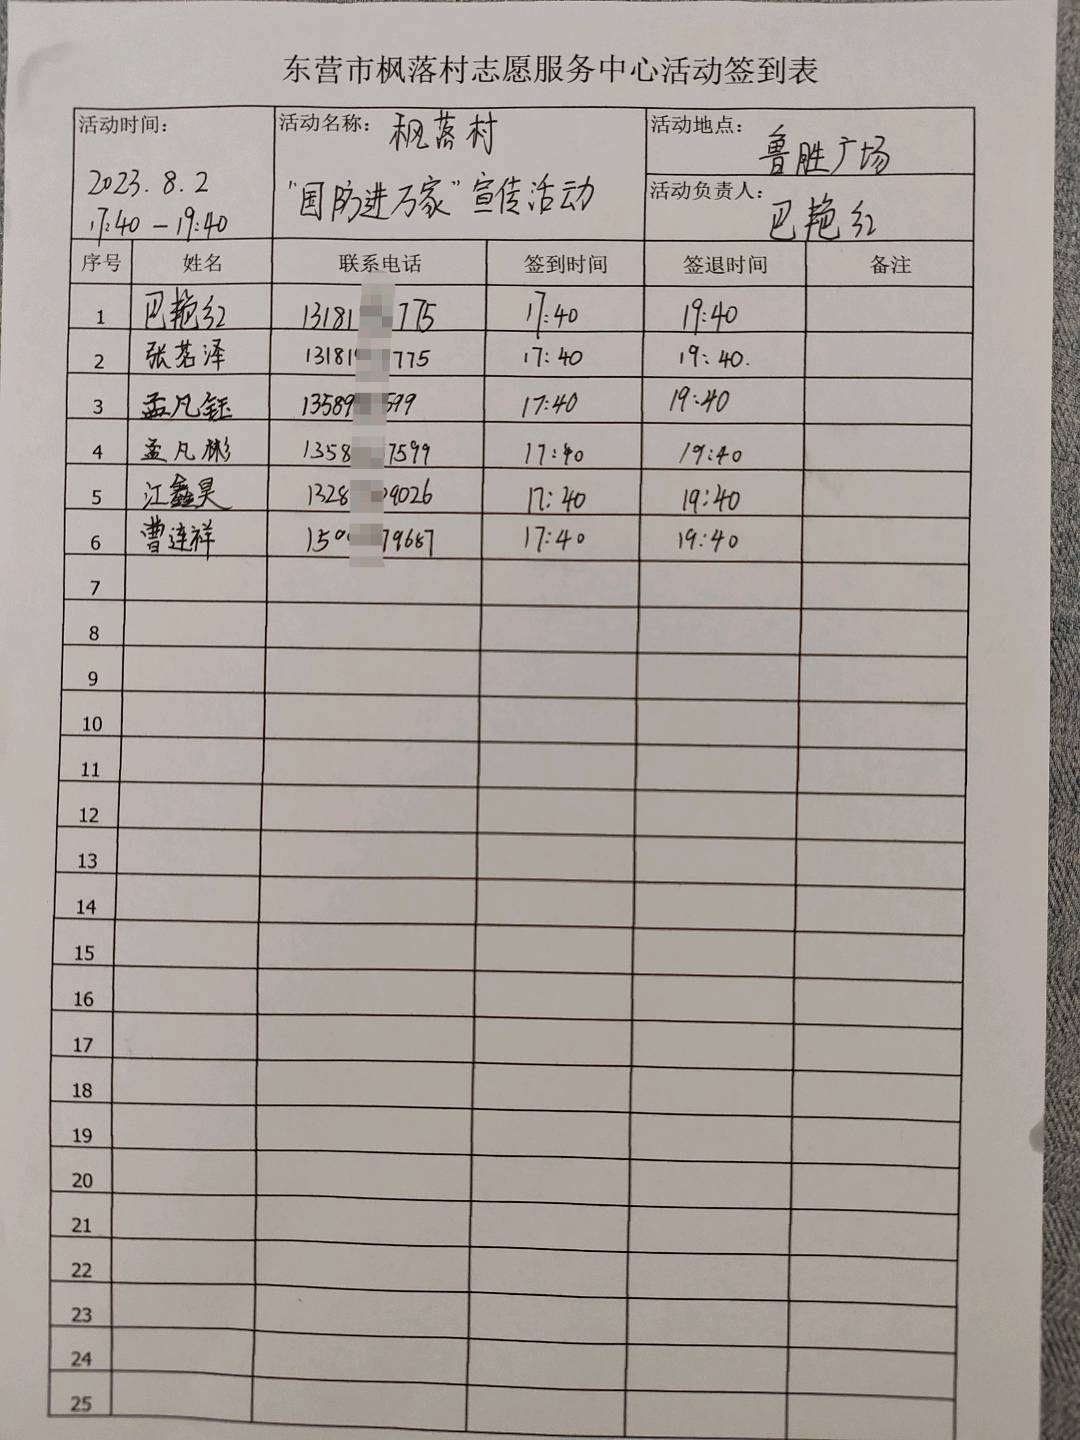 东营市枫落村志愿服务中心活动签到表
活动时间：
2023.8.2
17:40 — 19:40
活动名称： 枫落村
“国防进万家”宣传活动
活动地点： 鲁胜广场
活动负责人： 巴艳红
序号 姓名 联系电话 签到时间 签退时间 备注
1 巴艳红 13181 775 17:40 19:40
2 张茗泽 13181 775 17:40 19:40.
3 孟凡钰 13589 599 17:40 19:40
4 孟凡彬 1358 7599 17:40 19:40
5 江鑫昊 1328 9026 17:40 19:40
6 曹连祥 159 79687 17:40 19:40
7
8
9
10
11
12
13
14
15
16
17
18
19
20
21
22
23
24
25